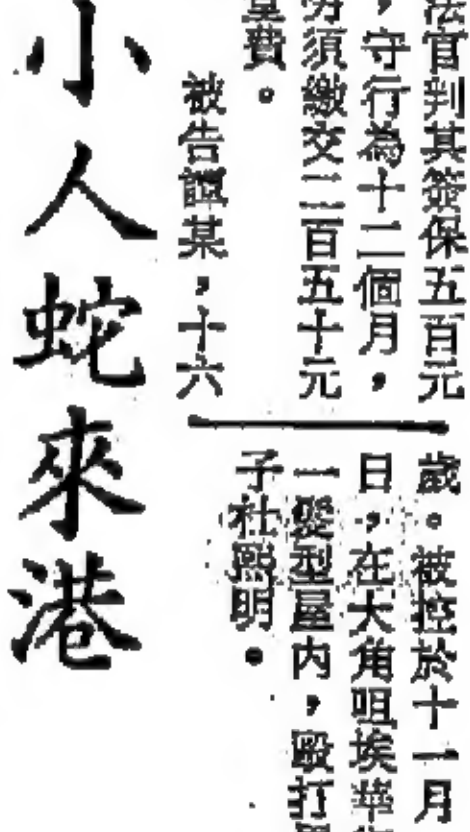 法官判其簽保五百元
，守行為十二個月，
須繳交二百五十元
堂費。
被告譚某，十六
歲。被控於十一月
日，在大角咀埃華
一髮型屋內，毆打
子杜熙明。
小人蛇來港